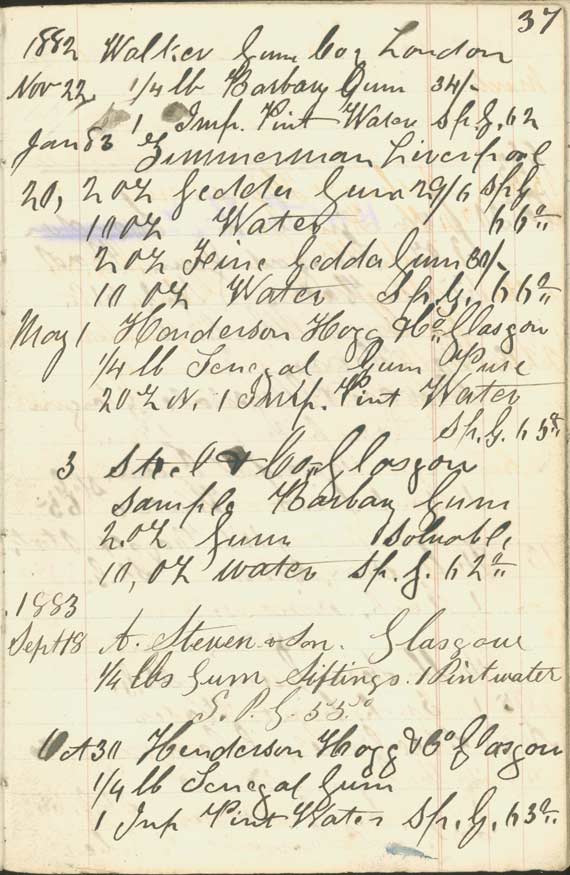 37
1882 Walker Gum Coy London
Nov 22, 1/4 lb Barbary Gum 34/-
1 Imp. Pint Water Sp. G. 62
Jan 83 Zimmerman Liverpool
20, 2 OZ Gedda Gum 29/6 SpG
10 OZ Water 66°
2 OZ Fine Gedda Gum 30/-
10 OZ Water Sp. G. 66°
May 1 Henderson Hogg & Co Glasgow
1/4 lb Senegal Gum Pure
20Z N. 1 Imp. Pint Water
Sp. G. 65°
3 Steel & Co. Glasgow
Sample Barbary Gum
2. OZ Gum Soluable
10, OZ Water Sp. G. 62°
1883
Sept 18 A. Steven & Son. Glasgow
1/4 lbs Gum Siftings. 1 Pint water
S. P. G. 55.°
Oct 30 Henderson Hogg & Co Glasgow
1/4 lb Senegal Gum
1 Imp Pint Water Sp. G. 63°